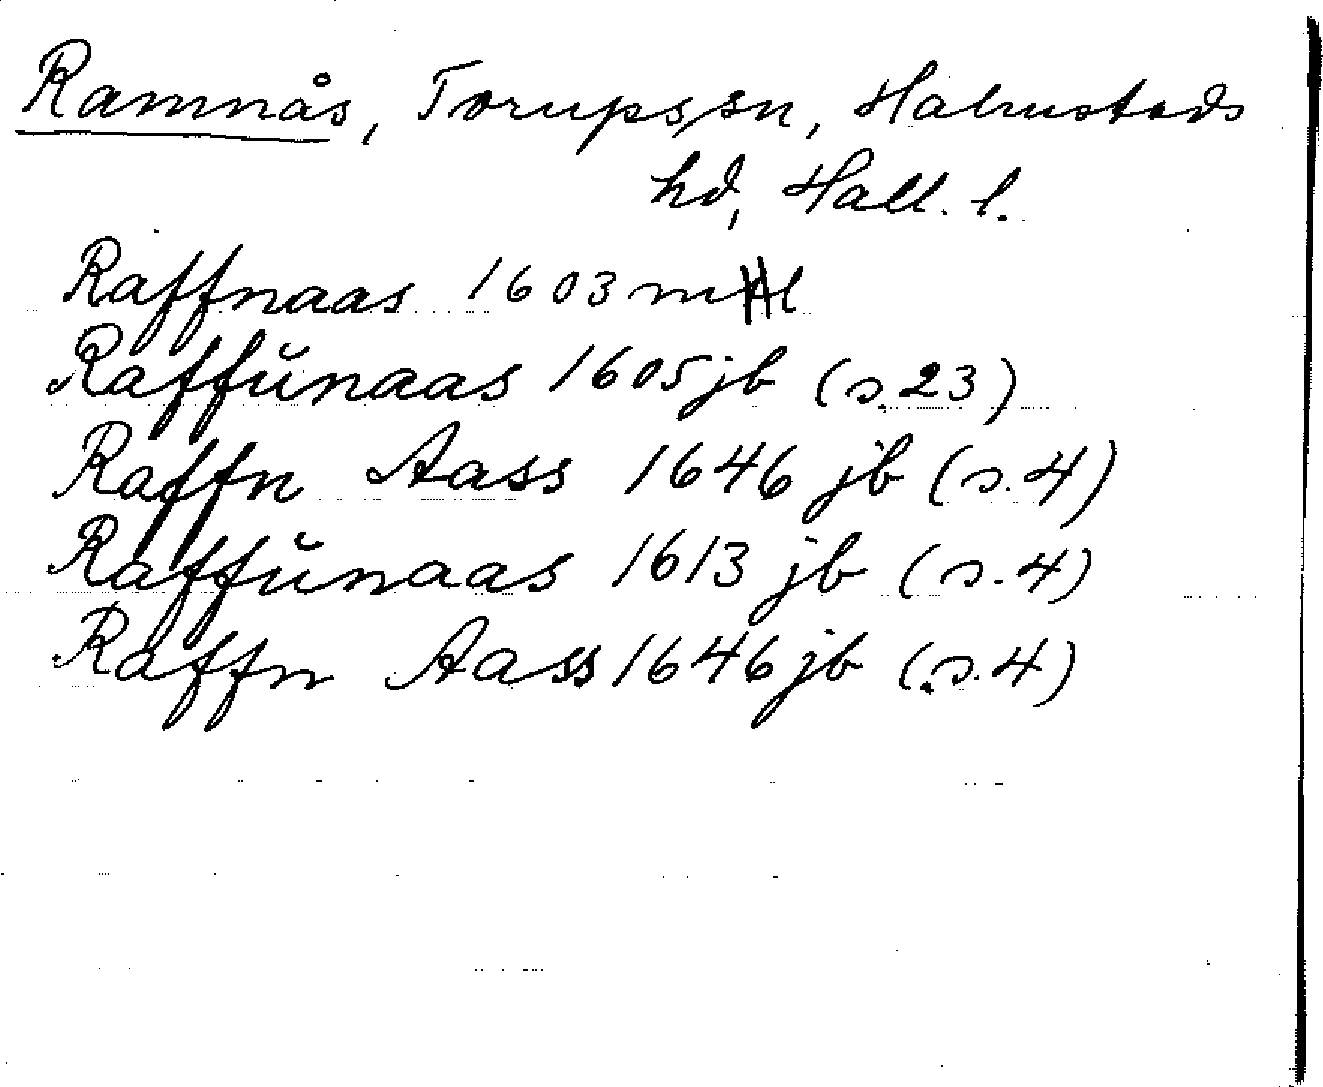 Ramnås, Torups sn, Halmstads
hd, Hall. l.
Raffnaas 1603 ml
Raffŭnaas 1605 jb (s. 23)
Raffn Aass 1646 jb (s. 4)
Raffŭnaas 1613 jb (s. 4)
Raffn Aass 1646 jb (s. 4)